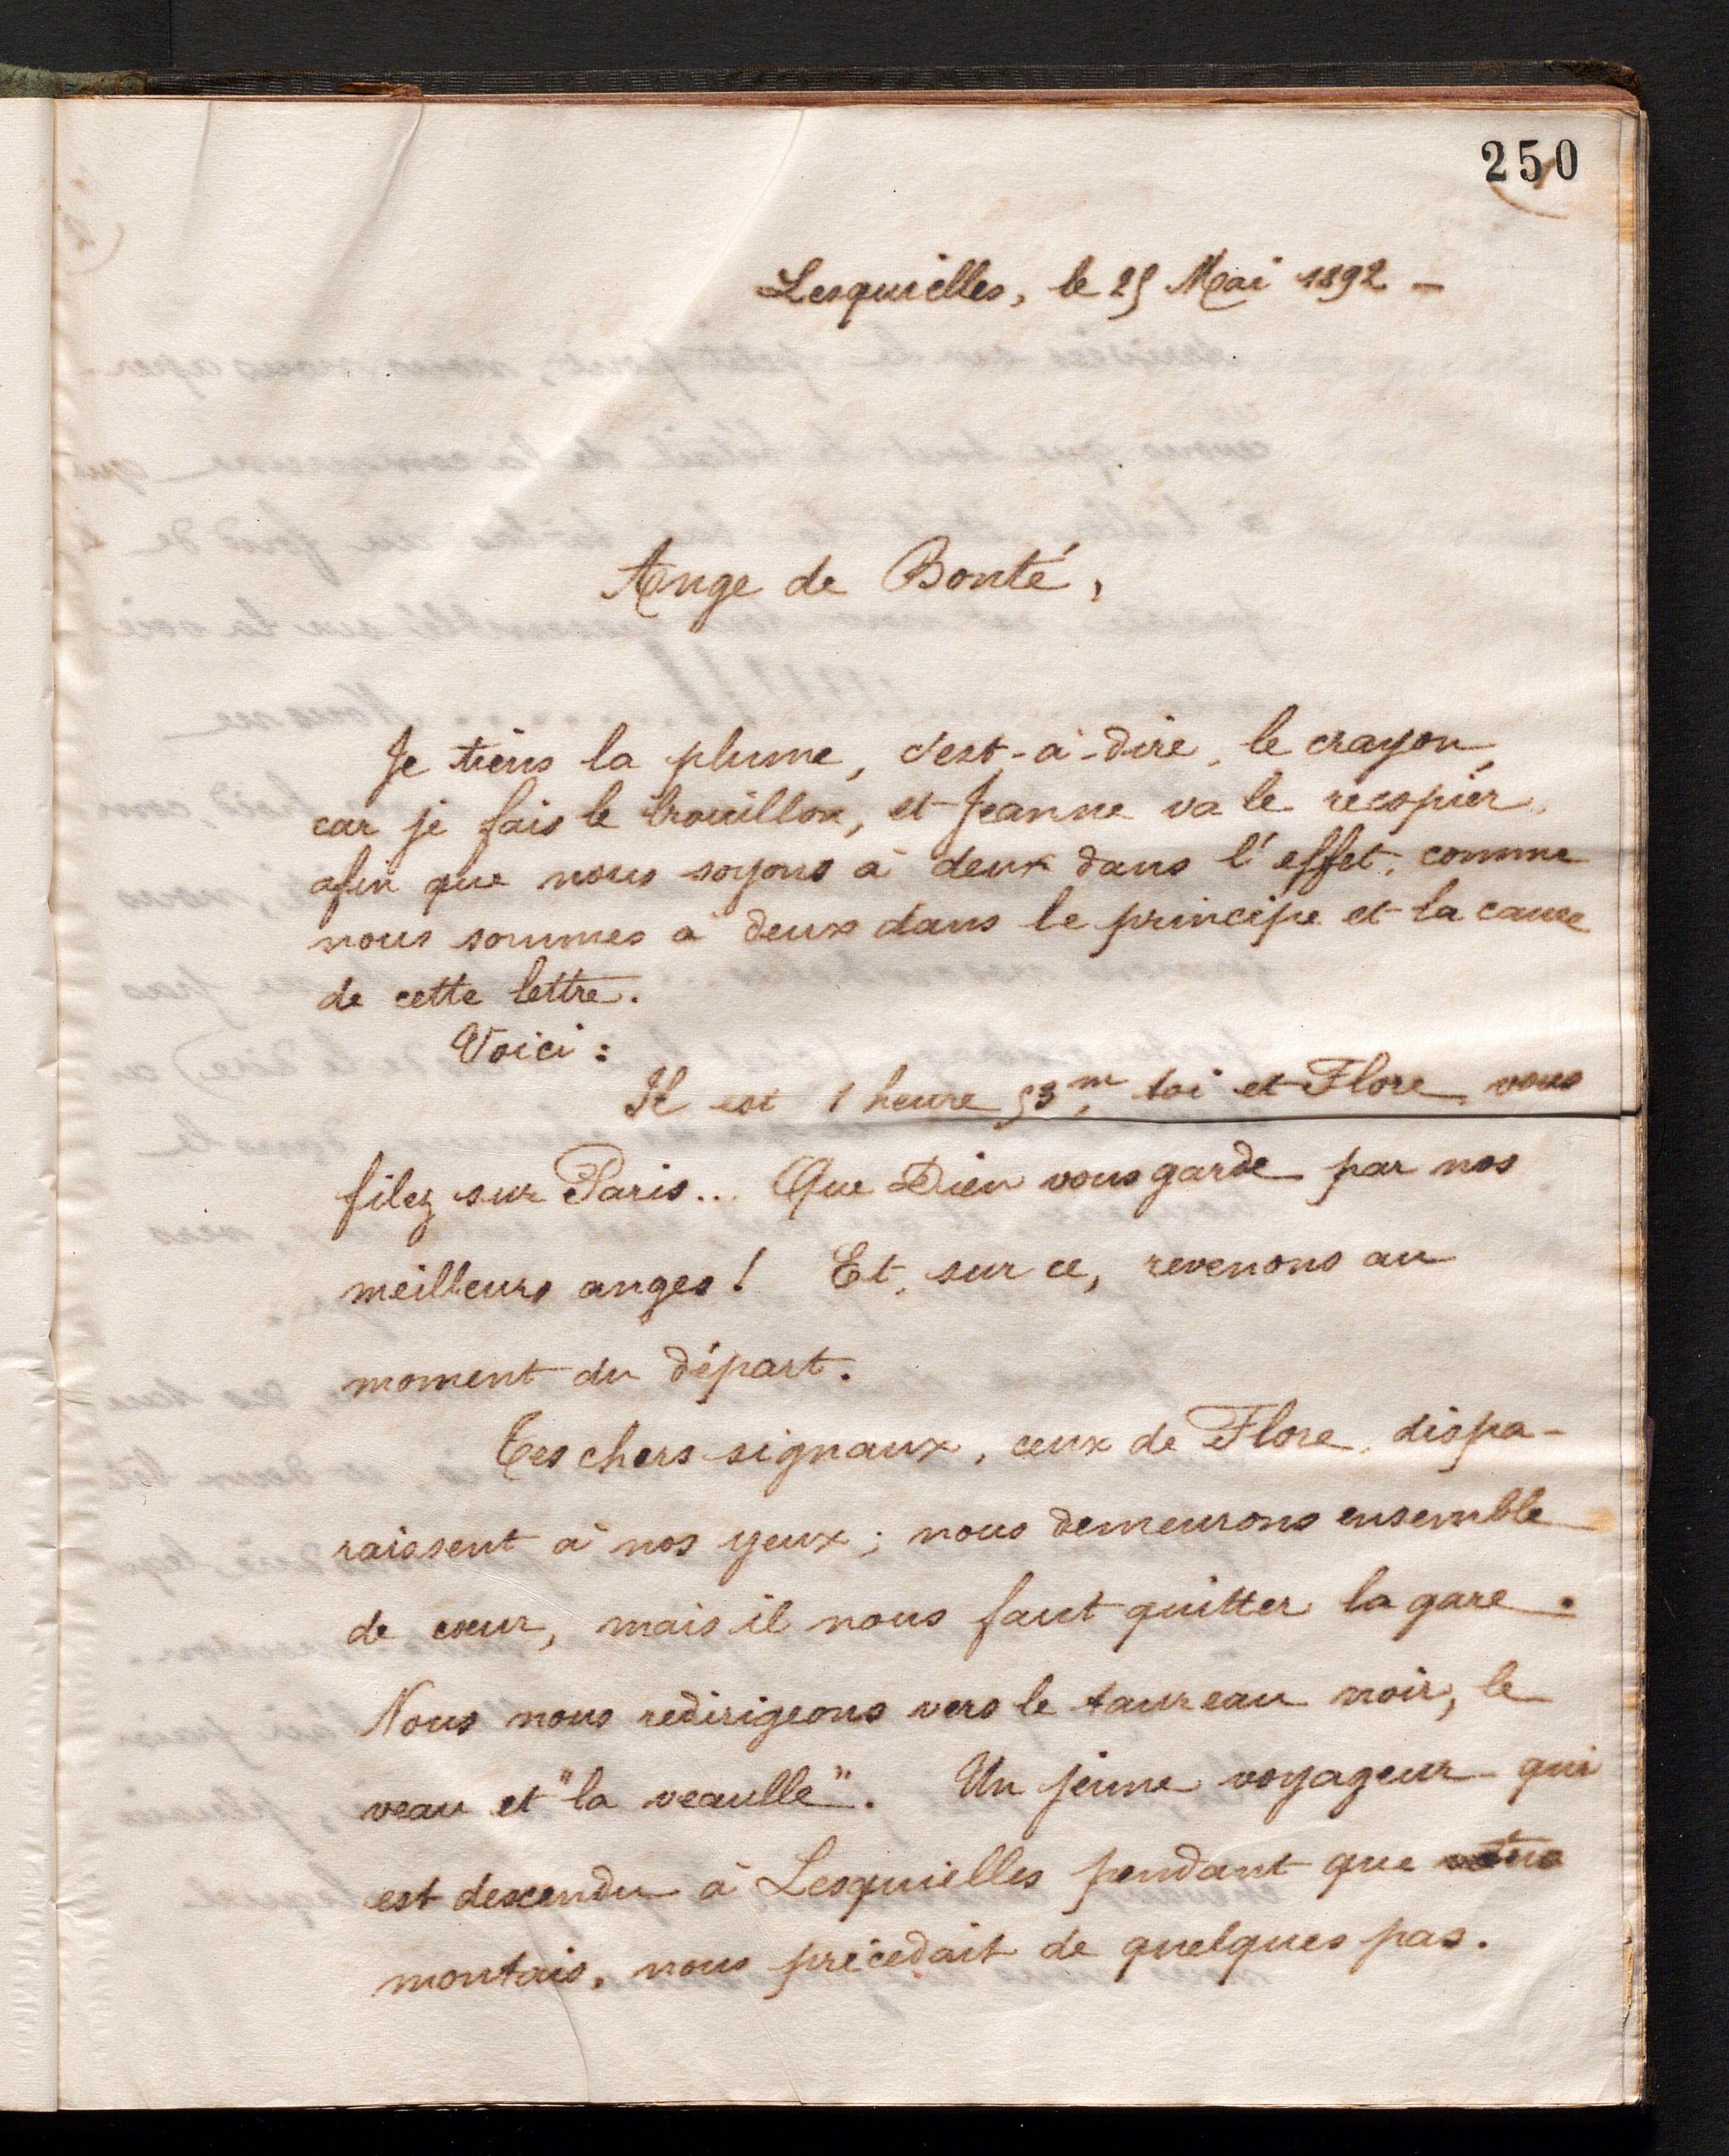 250
Lesquielles, le 25 Mai 1892 -
Ange de Bonté,
Je tiens la plume, c'est-à-dire, le crayon,
car je fais le brouillon, et Jeanne va le recopier,
afin que nous soyons à deux dans l'effet, comme
nous sommes à deux dans le principe et la cause
de cette lettre.
Voici :
Il est 1 heure 53m, toi et Flore vous
filez sur Paris... Que Dieu vous garde par nos
meilleurs anges ! Et, sur ce, revenons au
moment du départ.
Tes chers signaux, ceux de Flore, dispa-
raissent à nos yeux ; nous demeurons ensemble
de cœur, mais il nous faut quitter la gare.
Nous nous redirigeons vers le taureau noir, le
veau et "la veaulle". Un jeune voyageur qui
est descendu à Lesquielles pendant que
montais, nous précédait de quelques pas.